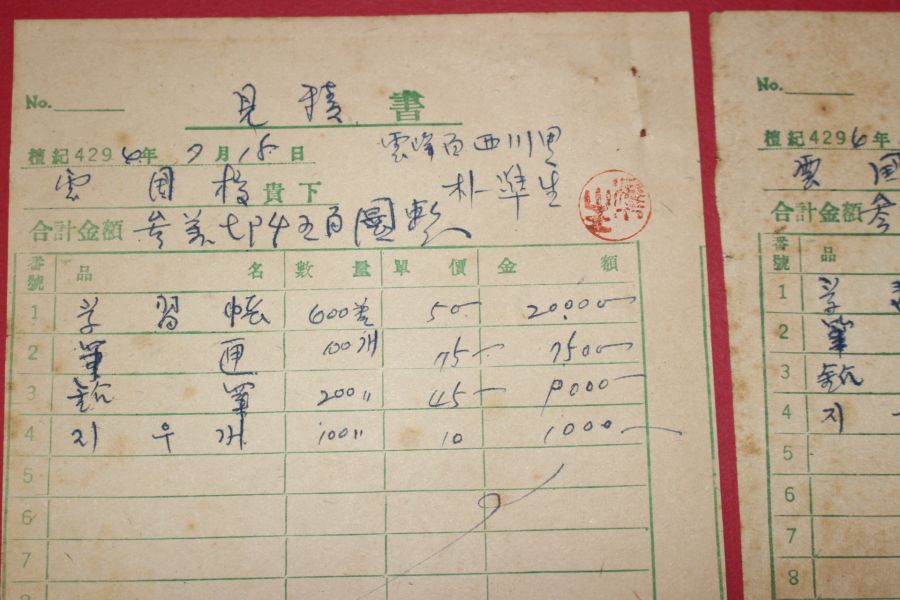 No.
見積書
檀紀4294年 7月 15日
雲峰面 西川里
雲 国校 貴下
朴準生
合計金額 参萬七阡五百圜整
番號 品名 數量 單價 金額
1 学習帳 400巻 50 20000
2 筆匣 100개 75 7500
3 鉛筆 200〃 45 9000
4 지우개 100〃 10 1000
5
6
7
No.
檀紀4294年
雲 国
合計金額 参
番號 品
1 学
2 筆
3 鉛
4 지
5
6
7
8